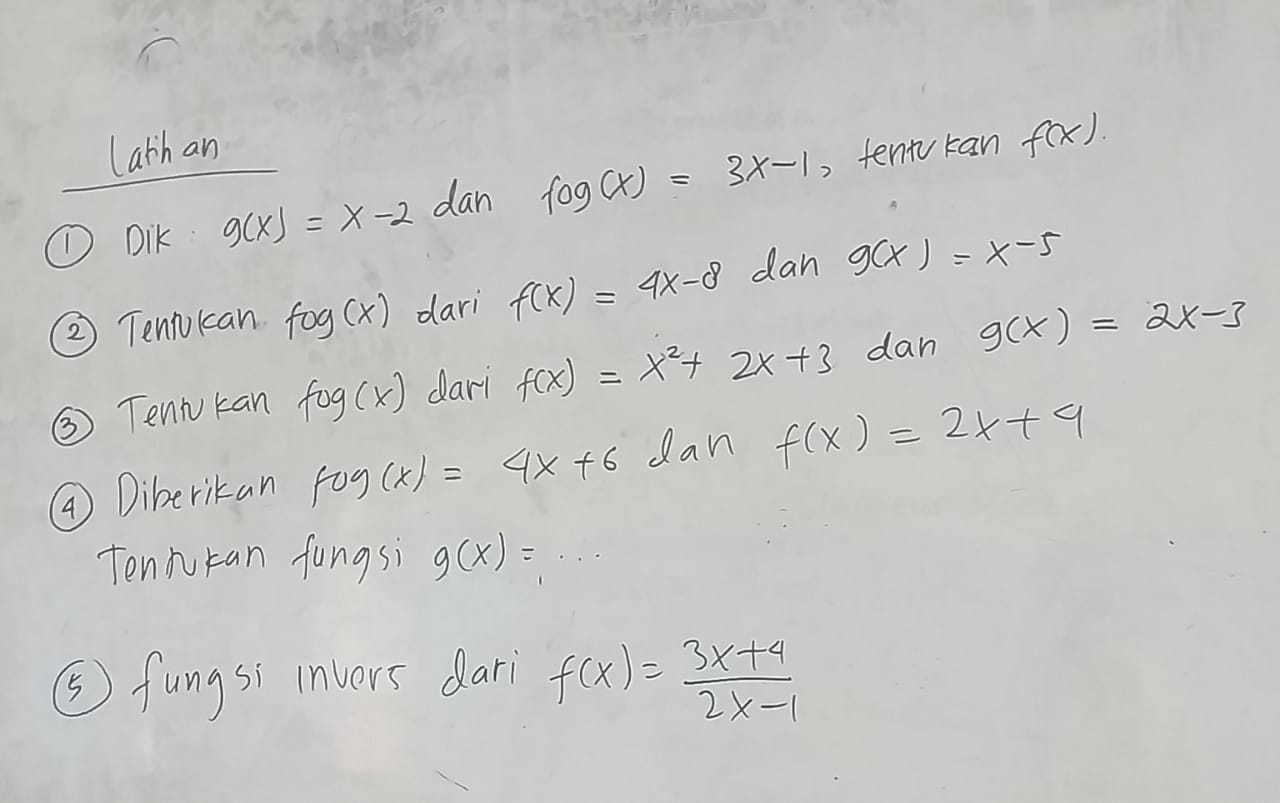 Latihan
① Dik : g(x) = x-2 dan fog(x) = 3x-1, tentukan f(x).
② Tentukan fog(x) dari f(x) = 4x-8 dan g(x) = x-5
③ Tentukan fog(x) dari f(x) = x²+ 2x+3 dan g(x) = 2x-3
④ Diberikan fog(x) = 4x+6 dan f(x) = 2x+4
Tentukan fungsi g(x) = ...
⑤ fungsi invers dari f(x) = 3x+4
2x-1